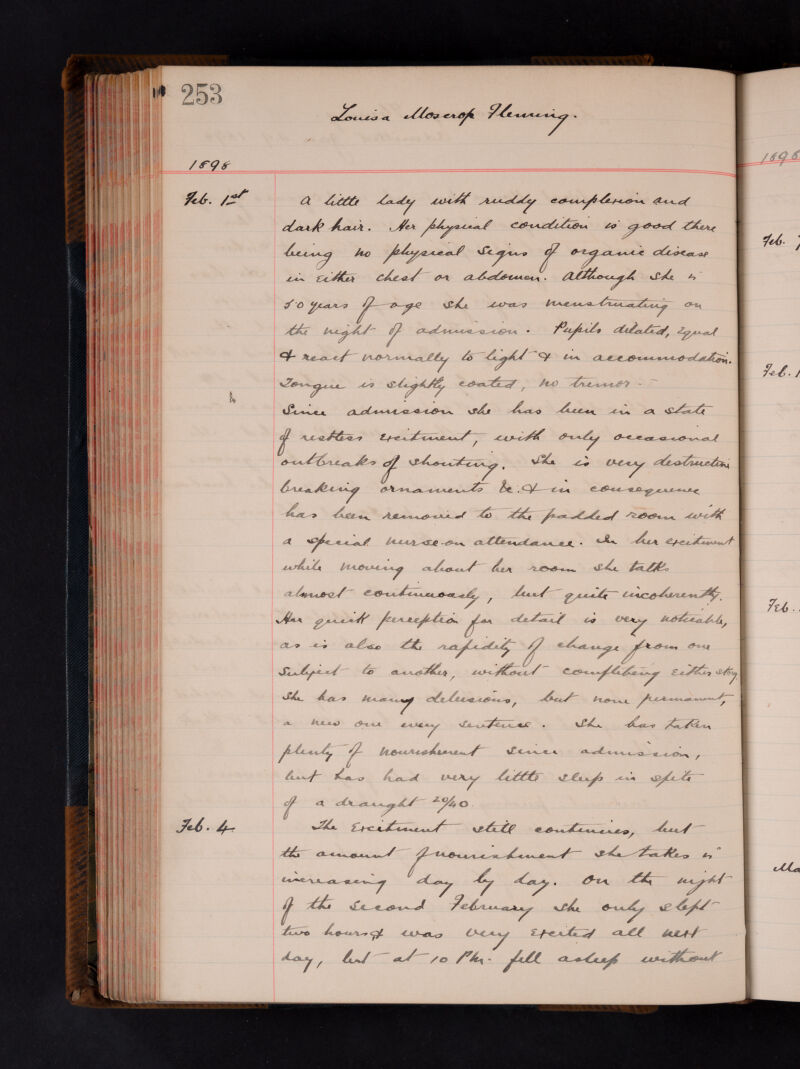 253
Louisa Moscrop Fleming.
1898
Feb. 1st
A little lady with ruddy complexion and
dark hair. Her physical condition is good there
being no physical signs of organic disease
in either chest or abdomen. Although she is
50 years of age she was menstruating on
the night of admission. Pupils dilated, equal
& react normally to light & in accommodation.
Tongue is slightly coated, no tremor.
Since admission she has been in a state
of restless excitement, with only occasional
outbreaks of shouting. She is very destructive
breaking ornaments &c. & in consequence
has been removed to the padded room with
a special nurse on attendance. In her excitement
while moving about her room she talks
almost continuously, but quite incoherently.
Her quick perception for detail is very noticeable,
as is also the rapidity of change from one
subject to another, without completing either story
She has many delusions, but none permanent,
a new one every sentence. She has taken
plenty of nourishment since admission,
but has had very little sleep in spite
of a draught 20/40.
Feb. 4
The Excitement still continues, but
the amount of nourishment she takes is
increasing day by day. On the night
of the second February she only slept
two hours & was very excited all next
day, but at 10 P.M. fell asleep without
1898
Feb.
Feb. 1
Feb.
Ma